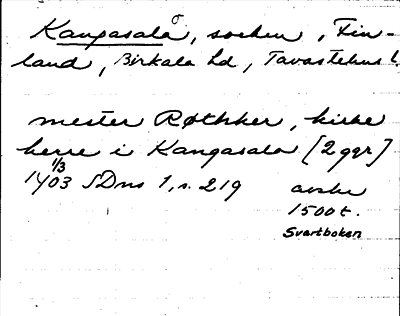 Kangasalå, socken, Fin-
land, Birkala hd, Tavastehus l.
mester Røthker, kirke
herre i Kangasala [2 ggr]
1403 1/3 SDns 1, s. 219
avskr
1500 t.
Svartboken